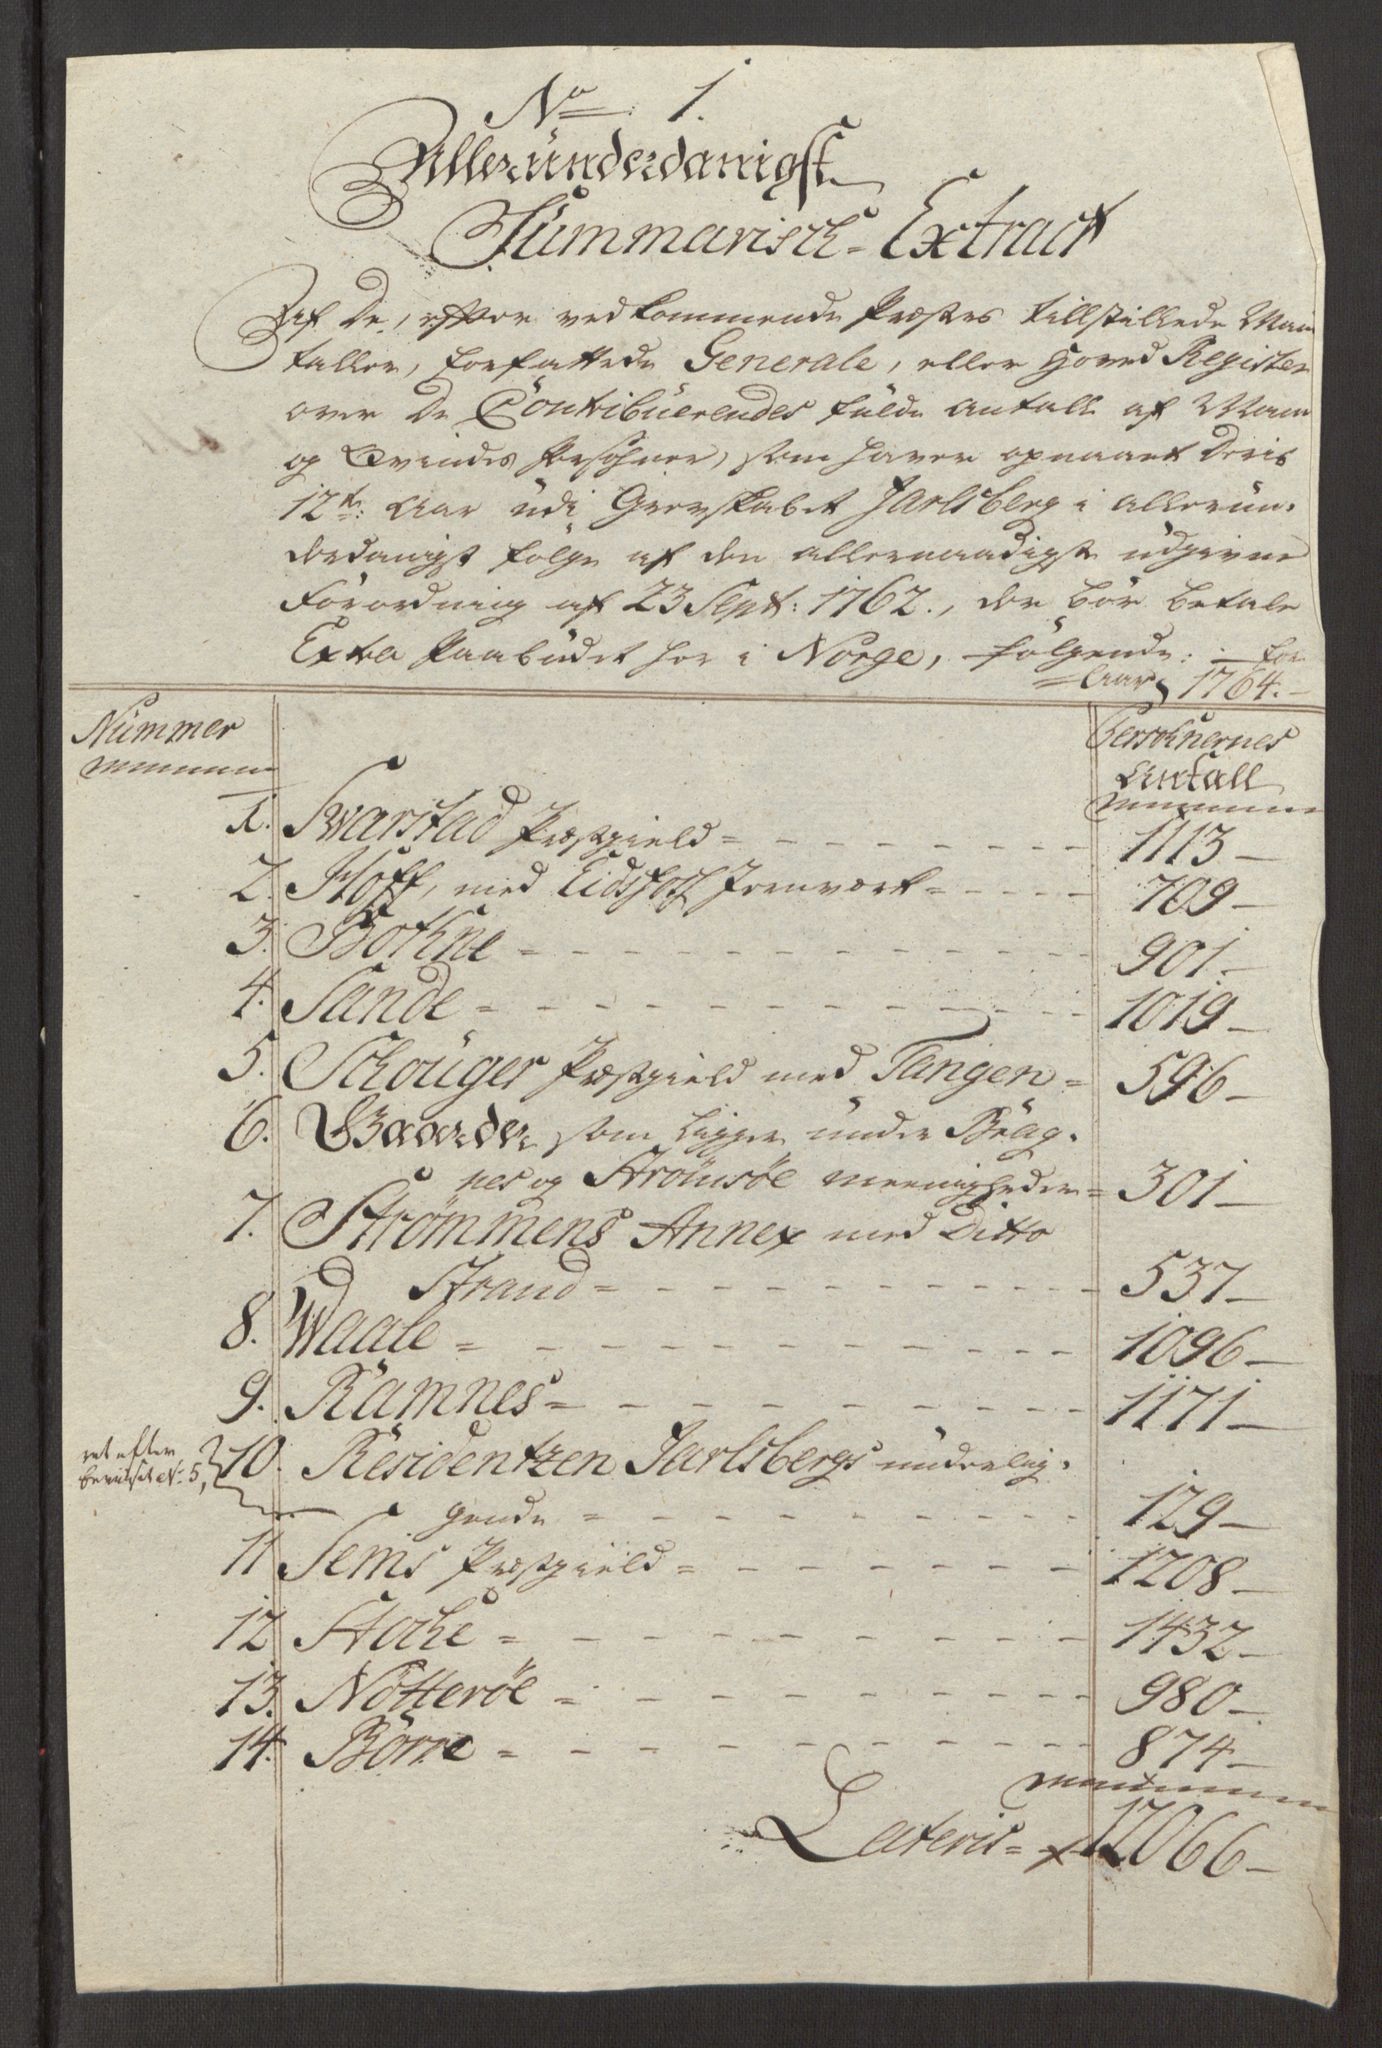 No 1.
Alleründerdanigst
Summarisch Extract
Af De, efter vedkommende Præsters tillstillede Man
taller, forfattede Generale, eller Hoved Register
over De Contribüerendes fülde antall af Mans
og Qvindes Persohner, som haver opnaaet Deris
12te: Aar üdi Grevskabet Jarlsberg i allerün-
derdanigst følge af den allernaadigste üdgivne
Forordning af 23 Sept: 1762., der bør betale
Extra Paabüdet her i Norge, følgende: for
Aar 1764.
Nümmer
Persohnernes
Antall
1. Swarstad Præstgield = 1113
2. Hoff, med Eidsfoss Jernværk = 709
3. Bothne = 901
4. Sande = 1019
5. Schouger Præstgield med Tangen = 596
6. Gaarder som ligger ünder Brag-
nes og Strömsöe meenigheder = 301
7. Strömmens Annex med Ditto
Strand = 537
8. Waale = 1096
9. Ramnes = 1171
ret efter
bevisset No. 5,
10. Residentzen Jarlsbergs ünderlig-
gende = 129
11 Sems Præstgield = 1208
12 Stoche = 1432
13. Nötteröe = 980
14. Börre = 874
Lateris = 12066